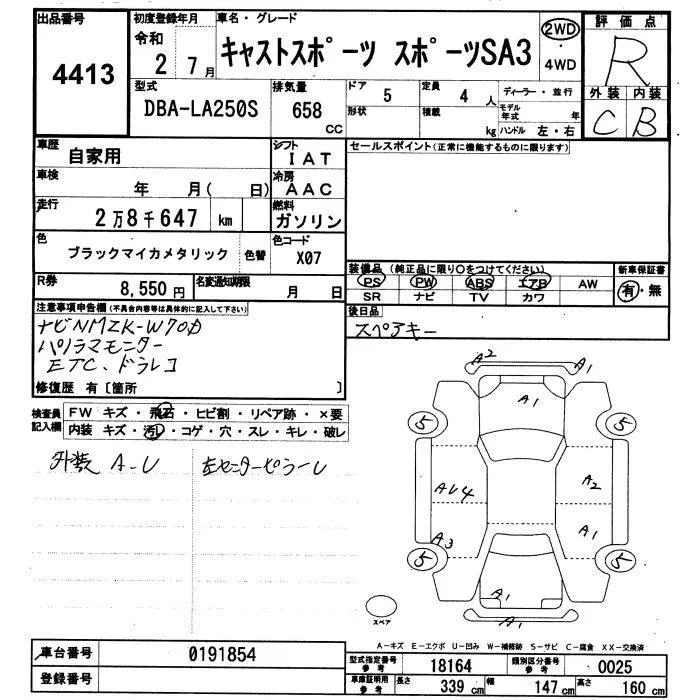 出品番号
4413
初度登録年月
令和
2 7月
車名・グレード
キャストスポーツ スポーツSA3
2WD
・
4WD
評価点
R
外装 内装
C B
型式
DBA-LA250S
排気量
658
CC
ドア
5
定員
4 人
形状
積載
kg
ディーラー・並行
モデル年式 年
ハンドル 左・右
車歴
自家用
シフト
IAT
車検
年 月( 日)
冷房
AAC
走行
2万8千647 km
燃料
ガソリン
色
ブラックマイカメタリック
色替
色コード
X07
R券
8,550円
名変通知期限
月 日
セールスポイント(正常に機能するものに限ります)
装備品(純正品に限り○をつけてください)
PS PW ABS エアB AW
SR ナビ TV カワ
新車保証書
有・無
後日品
スペアキー
注意事項申告欄(不具合内容等は具体的に記入して下さい)
ナビNMZK-W70D
パノラマモニター
ETC、ドラレコ
修復歴 有〔箇所 〕
検査員記入欄
FW キズ・飛石・ヒビ割・リペア跡・×要
内装 キズ・汚れ・コゲ・穴・スレ・キレ・破レ
外装 A-U 左センターピラーU
A2
A1
A1
5
5
AU4
A2
A1
A3
5
5
A1
A1
スペア
A-キズ E-エクボ U-凹み W-補修跡 S-サビ C-腐食 XX-交換済
車台番号
0191854
登録番号
型式指定番号
参考
18164
類別区分番号
参考
0025
車庫証明用
参考
長さ
339 cm
幅
147 cm
高さ
160 cm